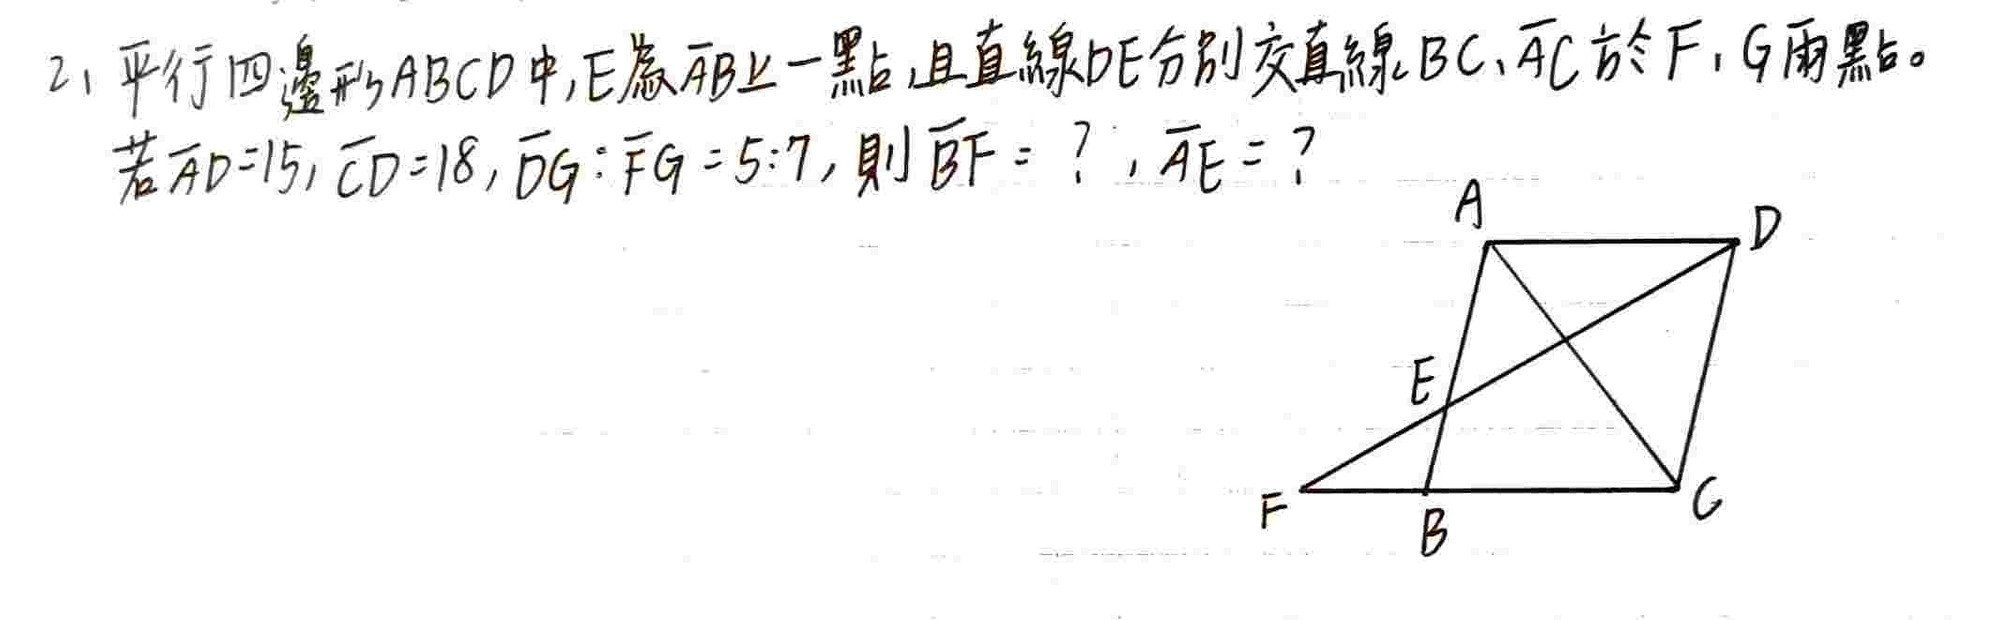 2、平行四邊形ABCD中,E為AB上一點,且直線DE分別交直線BC、AC於F,G兩點。
若AD=15, CD=18, DG:FG=5:7, 則BF=?, AE=?
A
D
E
F
B
C